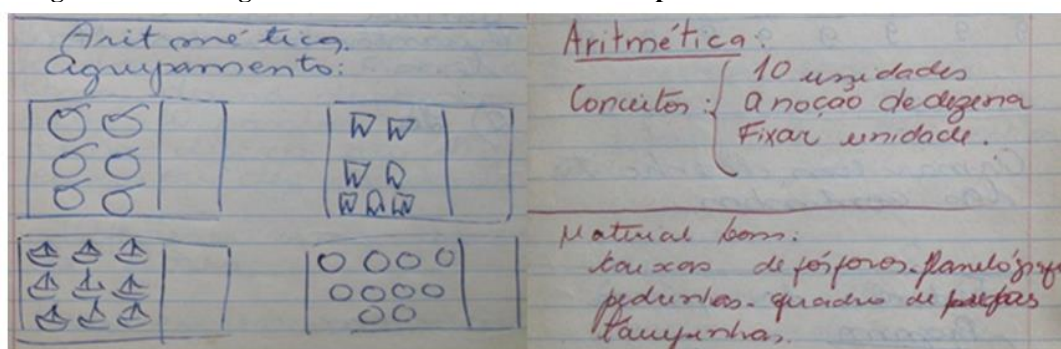 Aritmética.
Agrupamento:
Aritmética:
Conceitos:
10 unidades
a noção de dezena
Fixar unidade.
Material bom:
caixas de fósforos. flanelógrafo
pedrinhas. quadro de pregas
tampinhas.